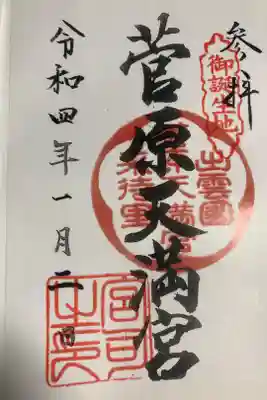 参拝
御誕生地
菅原天満宮
出雲國
天満宮
令和四年一月二日
宮司
之印